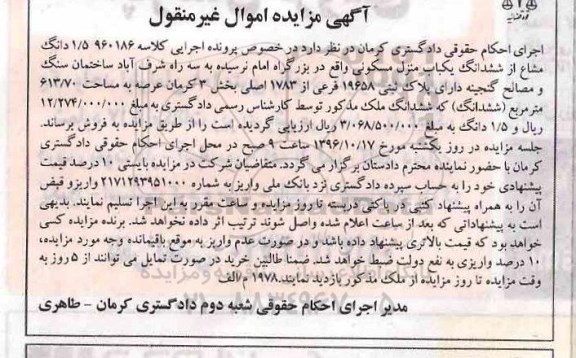 آگهی مزایده اموال غیرمنقول
اجرای احکام حقوقی دادگستری کرمان در نظر دارد در خصوص پرونده اجرایی کلاسه ۹۶۰۱۸۶ ۱/۵ دانگ
مشاع از ششدانگ یکباب منزل مسکونی واقع در بزرگراه امام نرسیده به سه راه شرف آباد ساختمان سنگ
و مصالح گنجینه دارای پلاک ثبتی ۱۹۶۵۸ فرعی از ۱۷۸۳ اصلی بخش ۳ کرمان عرصه به مساحت ۶۱۳/۷۰
مترمربع (ششدانگ) که ششدانگ ملک مذکور توسط کارشناس رسمی دادگستری به مبلغ ۱۲/۲۷۴/۰۰۰/۰۰۰
ریال و ۱/۵ دانگ به مبلغ ۳/۰۶۸/۵۰۰/۰۰۰ ریال ارزیابی گردیده است را از طریق مزایده به فروش برساند.
جلسه مزایده در روز یکشنبه مورخ ۱۳۹۶/۱۰/۱۷ ساعت ۹ صبح در محل اجرای احکام حقوقی دادگستری
کرمان با حضور نماینده محترم دادستان برگزار می گردد. متقاضیان شرکت در مزایده بایستی ۱۰ درصد قیمت
پیشنهادی خود را به حساب سپرده دادگستری نزد بانک ملی واریز به شماره ۲۱۷۱۲۹۳۹۵۱۰۰۰ واریز و فیض
آن را به همراه پیشنهاد کتبی در پاکتی دربسته تا روز مزایده و ساعت مقرر به این اجرا تسلیم نمایند. بدیهی
است به پیشنهاداتی که بعد از ساعت اعلام شده واصل شوند ترتیب اثر داده نخواهد شد. برنده مزایده کسی
خواهد بود که قیمت بالاتری پیشنهاد داده باشد و در صورت عدم واریز به موقع باقیمانده وجه مورد مزایده،
۱۰ درصد واریزی به نفع دولت ضبط خواهد شد. ضمنا طالبین خرید در صورت تمایل می توانند از ۵ روز به
وقت مزایده تا روز مزایده از ملک مذکور بازدید نمایند. ۱۹۷۸ م/الف
مدیر اجرای احکام حقوقی شعبه دوم دادگستری کرمان - طاهری